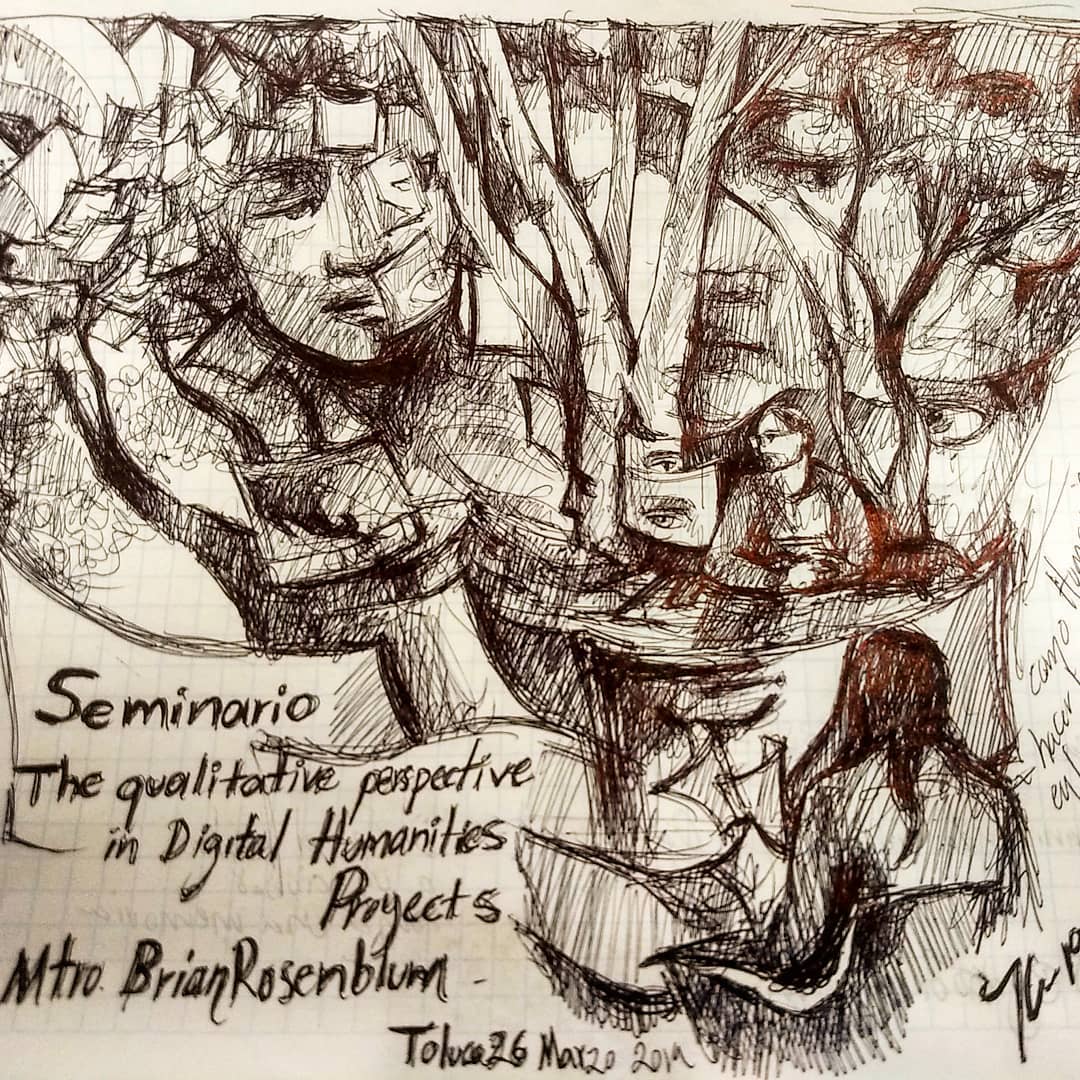 Seminario
The qualitative perspective
in Digital Humanities
Proyects
Mtro. Brian Rosenblum -
Toluca 26 Marzo
campo
hacer